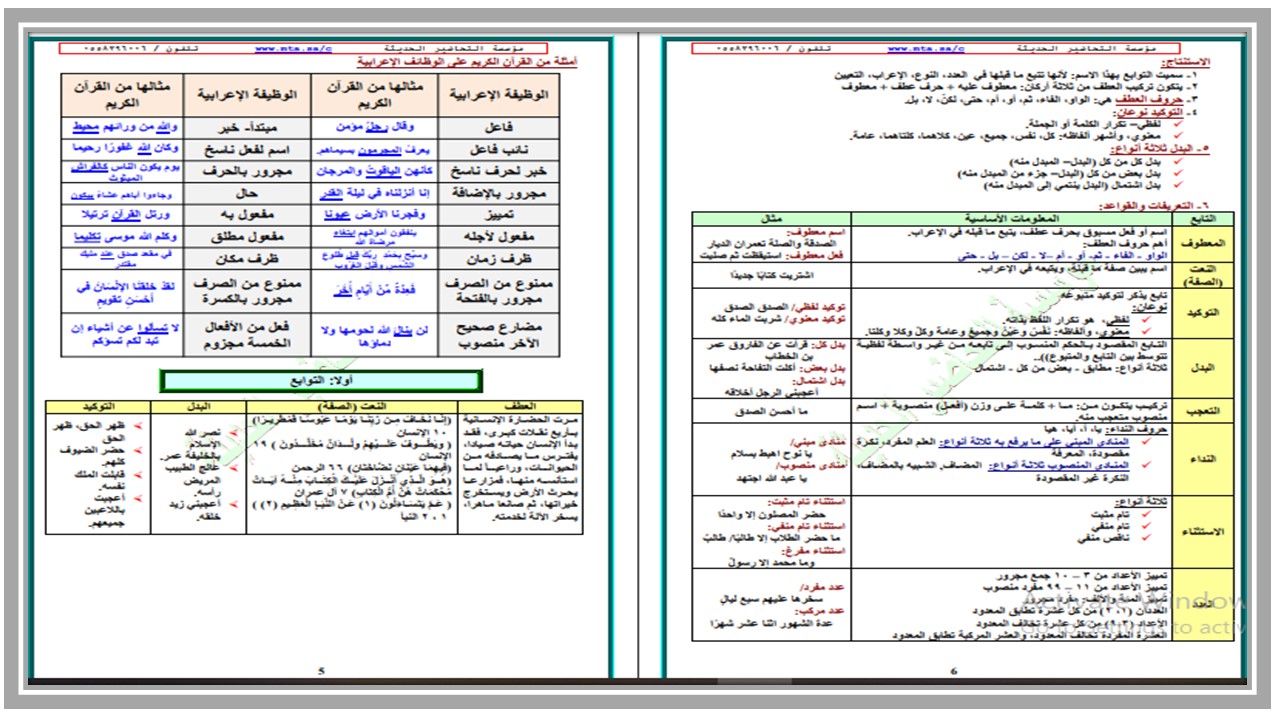 مؤسسة التحاضير الحديثة www.mta.sa/c تلفون / ٠٥٥٨٣٩٦٠٠٦
الاستنتاج:
١- سميت التوابع بهذا الاسم: لأنها تتبع ما قبلها في العدد، النوع، الإعراب، التعيين
٢- يتكون تركيب العطف من ثلاثة أركان: معطوف عليه + حرف عطف + معطوف
٣- حروف العطف هي: الواو، الفاء، ثم، أو، أم، حتى، لكن، لا، بل.
٤- التوكيد نوعان:
لفظي– تكرار الكلمة أو الجملة.
معنوي، وأشهر ألفاظه: كل، نفس، جميع، عين، كلاهما، كلتاهما، عامة.
٥- البدل ثلاثة أنواع:
بدل كل من كل (البدل= المبدل منه)
بدل بعض من كل (البدل- جزء من المبدل منه)
بدل اشتمال (البدل ينتمي إلى المبدل منه)
٦- التعريفات والقواعد:
التابع المعلومات الأساسية مثال
المعطوف
اسم أو فعل مسبوق بحرف عطف، يتبع ما قبله في الإعراب.
أهم حروف العطف:
الواو - الفاء - ثم- أو - أم –لا - لكن – بل - حتى
اسم معطوف:
الصدقة والصلة تعمران الديار
فعل معطوف: استيقظت ثم صليت
النعت (الصفة)
اسم يبين صفة ما قبله، ويتبعه في الإعراب.
اشتريت كتابًا جديدًا
التوكيد
تابع يذكر لتوكيد متبوعه
نوعان:
لفظي، هو تكرار اللفظ بذاته.
معنوي، وألفاظه: نفس وعين وجميع وعامة وكل وكلا وكلتا.
توكيد لفظي/ الصدق الصدق
توكيد معنوي/ شربت الماء كله
البدل
التابع المقصود بالحكم المنسوب إلى تابعه من غير واسطة لفظية
تتوسط بين التابع والمتبوع))..
ثلاثة أنواع: مطابق - بعض من كل - اشتمال
بدل كل: قرأت عن الفاروق عمر
بن الخطاب
بدل بعض: أكلت التفاحة نصفها
بدل اشتمال:
أعجبني الرجل أخلاقه
التعجب
تركيب يتكون من: ما + كلمة على وزن (أفعل) منصوبة + اسم
منصوب متعجب منه.
ما أحسن الصدق
النداء
حروف النداء: يا، أ، أيا، هيا
المنادى المبني على ما يرفع به ثلاثة أنواع: العلم المفرد، نكرة
مقصودة، المعرفة
المنادى المنصوب ثلاثة أنواع: المضاف، الشبيه بالمضاف،
النكرة غير المقصودة
منادى مبني/
يا نوح اهبط بسلام
منادى منصوب/
يا عبد الله اجتهد
الاستثناء
ثلاثة أنواع:
تام مثبت
تام منفي
ناقص منفي
استثناء تام مثبت:
حضر المصلون إلا واحدًا
استثناء تام منفي:
ما حضر الطلاب إلا طالبًا/ طالبٌ
استثناء مفرغ:
وما محمد إلا رسولٌ
العدد
تمييز الأعداد من ٣ – ١٠ جمع مجرور
تمييز الأعداد من ١١ – ٩٩ مفرد منصوب
تمييز المئة والألف: مفرد مجرور
العددان (٢،١) من كل عشرة تطابق المعدود
الأعداد (٩،٣) من كل عشرة تخالف المعدود
العشرة المفردة تخالف المعدود، والعشر المركبة تطابق المعدود
عدد مفرد/
سخرها عليهم سبع ليالٍ
عدد مركب:
عدة الشهور اثنا عشر شهرًا
6
مؤسسة التحاضير الحديثة www.mta.sa/c تلفون / ٠٥٥٨٣٩٦٠٠٦
أمثلة من القرآن الكريم على الوظائف الإعرابية
الوظيفة الإعرابية مثالها من القرآن الكريم الوظيفة الإعرابية مثالها من القرآن الكريم
فاعل وقال رجل مؤمن مبتدأ- خبر والله من ورائهم محيط
نائب فاعل يعرف المجرمون بسيماهم. اسم لفعل ناسخ وكان الله غفورًا رحيما
خبر لحرف ناسخ كأنهن الياقوت والمرجان مجرور بالحرف يوم يكون الناس كالفراش المبثوث
مجرور بالإضافة إنا أنزلناه في ليلة القدر حال وجاءوا أباهم عشاءً يبكون
تمييز وفجرنا الأرض عيونا مفعول به ورتل القرآن ترتيلا
مفعول لأجله ينفقون أموالهم ابتغاء مرضاة الله مفعول مطلق وكلم الله موسى تكليما
ظرف زمان وسبح بحمد ربك قبل طلوع الشمس وقبل الغروب ظرف مكان في مقعد صدق عند مليك مقتدر
ممنوع من الصرف مجرور بالفتحة فَعِدَّةٌ مِّنْ أَيَّامٍ أُخَرَ ممنوع من الصرف مجرور بالكسرة لقد خلقنا الإنسان في أحسن تقويم
مضارع صحيح الآخر منصوب لن ينال الله لحومها ولا دماؤها فعل من الأفعال الخمسة مجزوم لا تسألوا عن أشياء إن تبد لكم تسؤكم
أولا: التوابع
العطف النعت (الصفة) البدل التوكيد
مرت الحضارة الإنسانية
بأربع نقلات كبرى، فقد
بدأ الإنسان حياته صيادا،
يفترس ما يصادفه من
الحيوانات، وراعيا لما
استأنسه منها، فمزارعا
يحرث الأرض ويستخرج
خيراتها، ثم صانعا ماهرا،
يسخر الآلة لخدمته.
(إِنَّا نَخَافُ مِن رَّبِّنَا يَوْمًا عَبُوسًا قَمْطَرِيرًا)
١٠ الإنسان
( وَيَطُوفُ عَلَيْهِمْ وِلْدَانٌ مُّخَلَّدُونَ ) ١٩
الإنسان
(فِيهِمَا عَيْنَانِ نَضَّاخَتَانِ) ٦٦ الرحمن
(هُوَ الَّذِي أَنزَلَ عَلَيْكَ الْكِتَابَ مِنْهُ آيَاتٌ
مُّحْكَمَاتٌ هُنَّ أُمُّ الْكِتَابِ) ٧ آل عمران
( عَمَّ يَتَسَاءَلُونَ (١) عَنِ النَّبَإِ الْعَظِيمِ (٢))
٢٠١ النبأ
نصر الله
الإسلام
بالخليفة عمر.
عالج الطبيب
المريض
رأسه.
أعجبني زيد
خلقه.
ظهر الحق، ظهر
الحق
حضر الضيوف
كلهم.
قابلت الملك
نفسه.
أعجبت
باللاعبين
جميعهم.
5